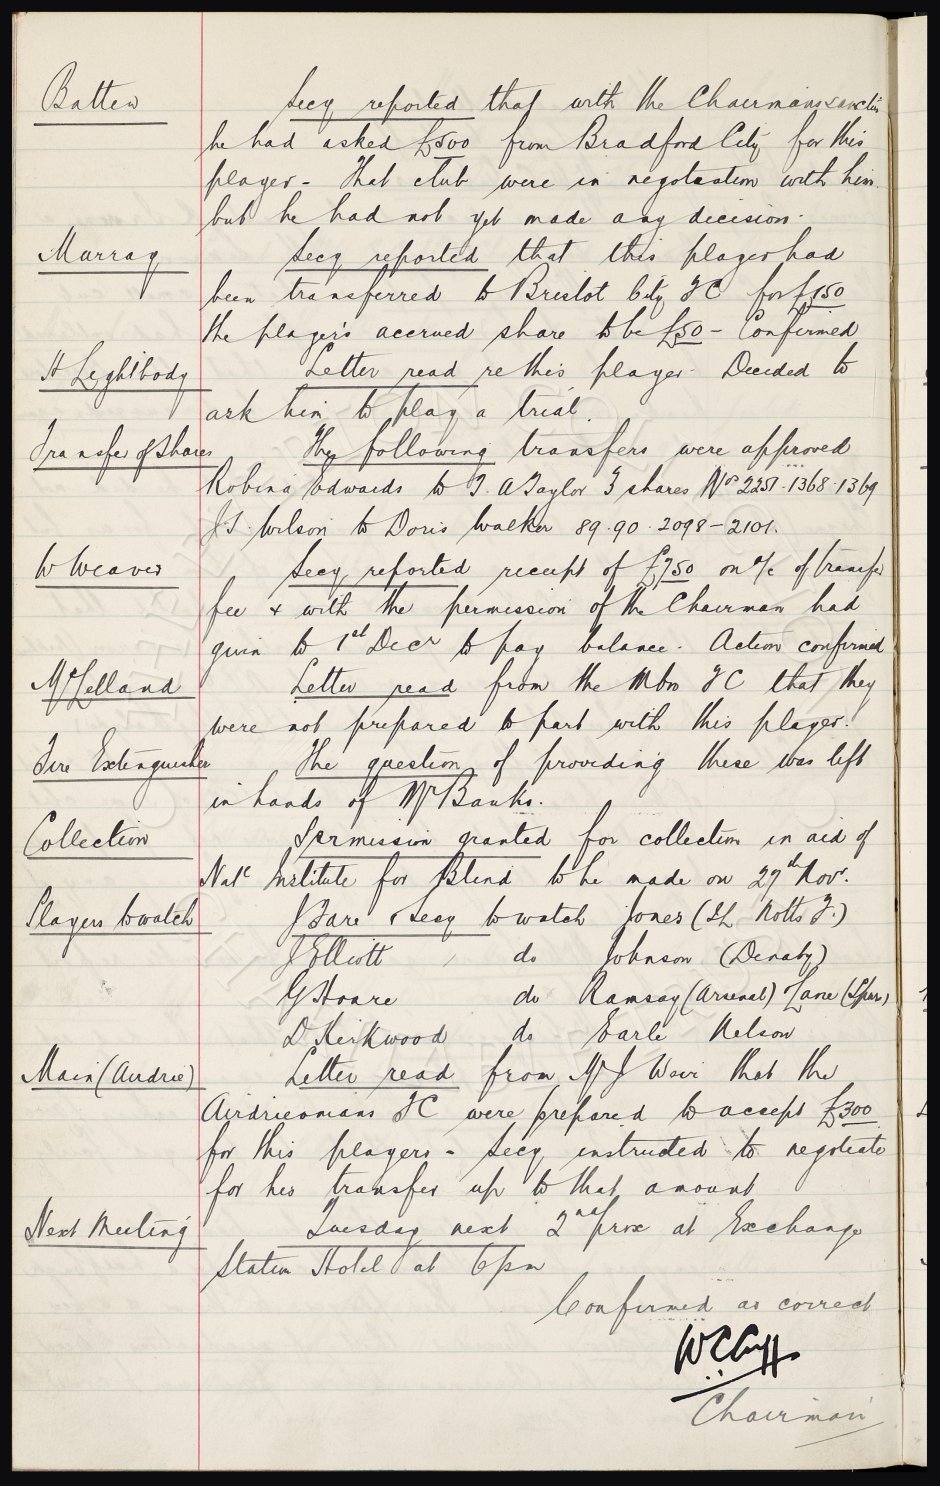 Batten
Secy reported that with the Chairmans sanction
he had asked £500 from Bradford City for this
player - That club were in negotiation with him
but he had not yet made any decision.
Murray
Secy reported that this player had
been transferred to Bristol City FC for £150
the player's accrued share to be £50 - Confirmed
H Lightbody
Letter read re this player. Decided to
ask him to play a trial.
Transfer of Shares
The following transfers were approved
Robina Edwards to T. A Taylor 3 shares Nos 2251. 1368. 1369
J. T. Wilson to Doris Walker 89. 90. 2098 - 2101.
W Weaver
Secy reported receipt of £750 on a/c of transfer
fee & with the permission of the Chairman had
given to 1st Decr to pay balance. Action confirmed
McClelland
Letter read from the Mbro FC that they
were not prepared to part with this player.
Fire Extinguisher
The question of providing these was left
in hands of Mr Banks.
Collection
Permission granted for collection in aid of
Natl Institute for Blind to be made on 27th Nov.
Players to watch
J Fare & Secy to watch Jones (Sth Notts F.)
J Elliott do Johnson (Denaby)
G Hoare do Ramsay (Arsenal) Lane (Spurs)
D Kirkwood do Earle Nelson
Main (Airdrie)
Letter read from Mr J Weir that the
Airdrieonians FC were prepared to accept £300
for this players - Secy instructed to negotiate
for his transfer up to that amount
Next Meeting
Tuesday next 2nd prox at Exchange
Station Hotel at 6pm
Confirmed as correct
W C Cuff
Chairman